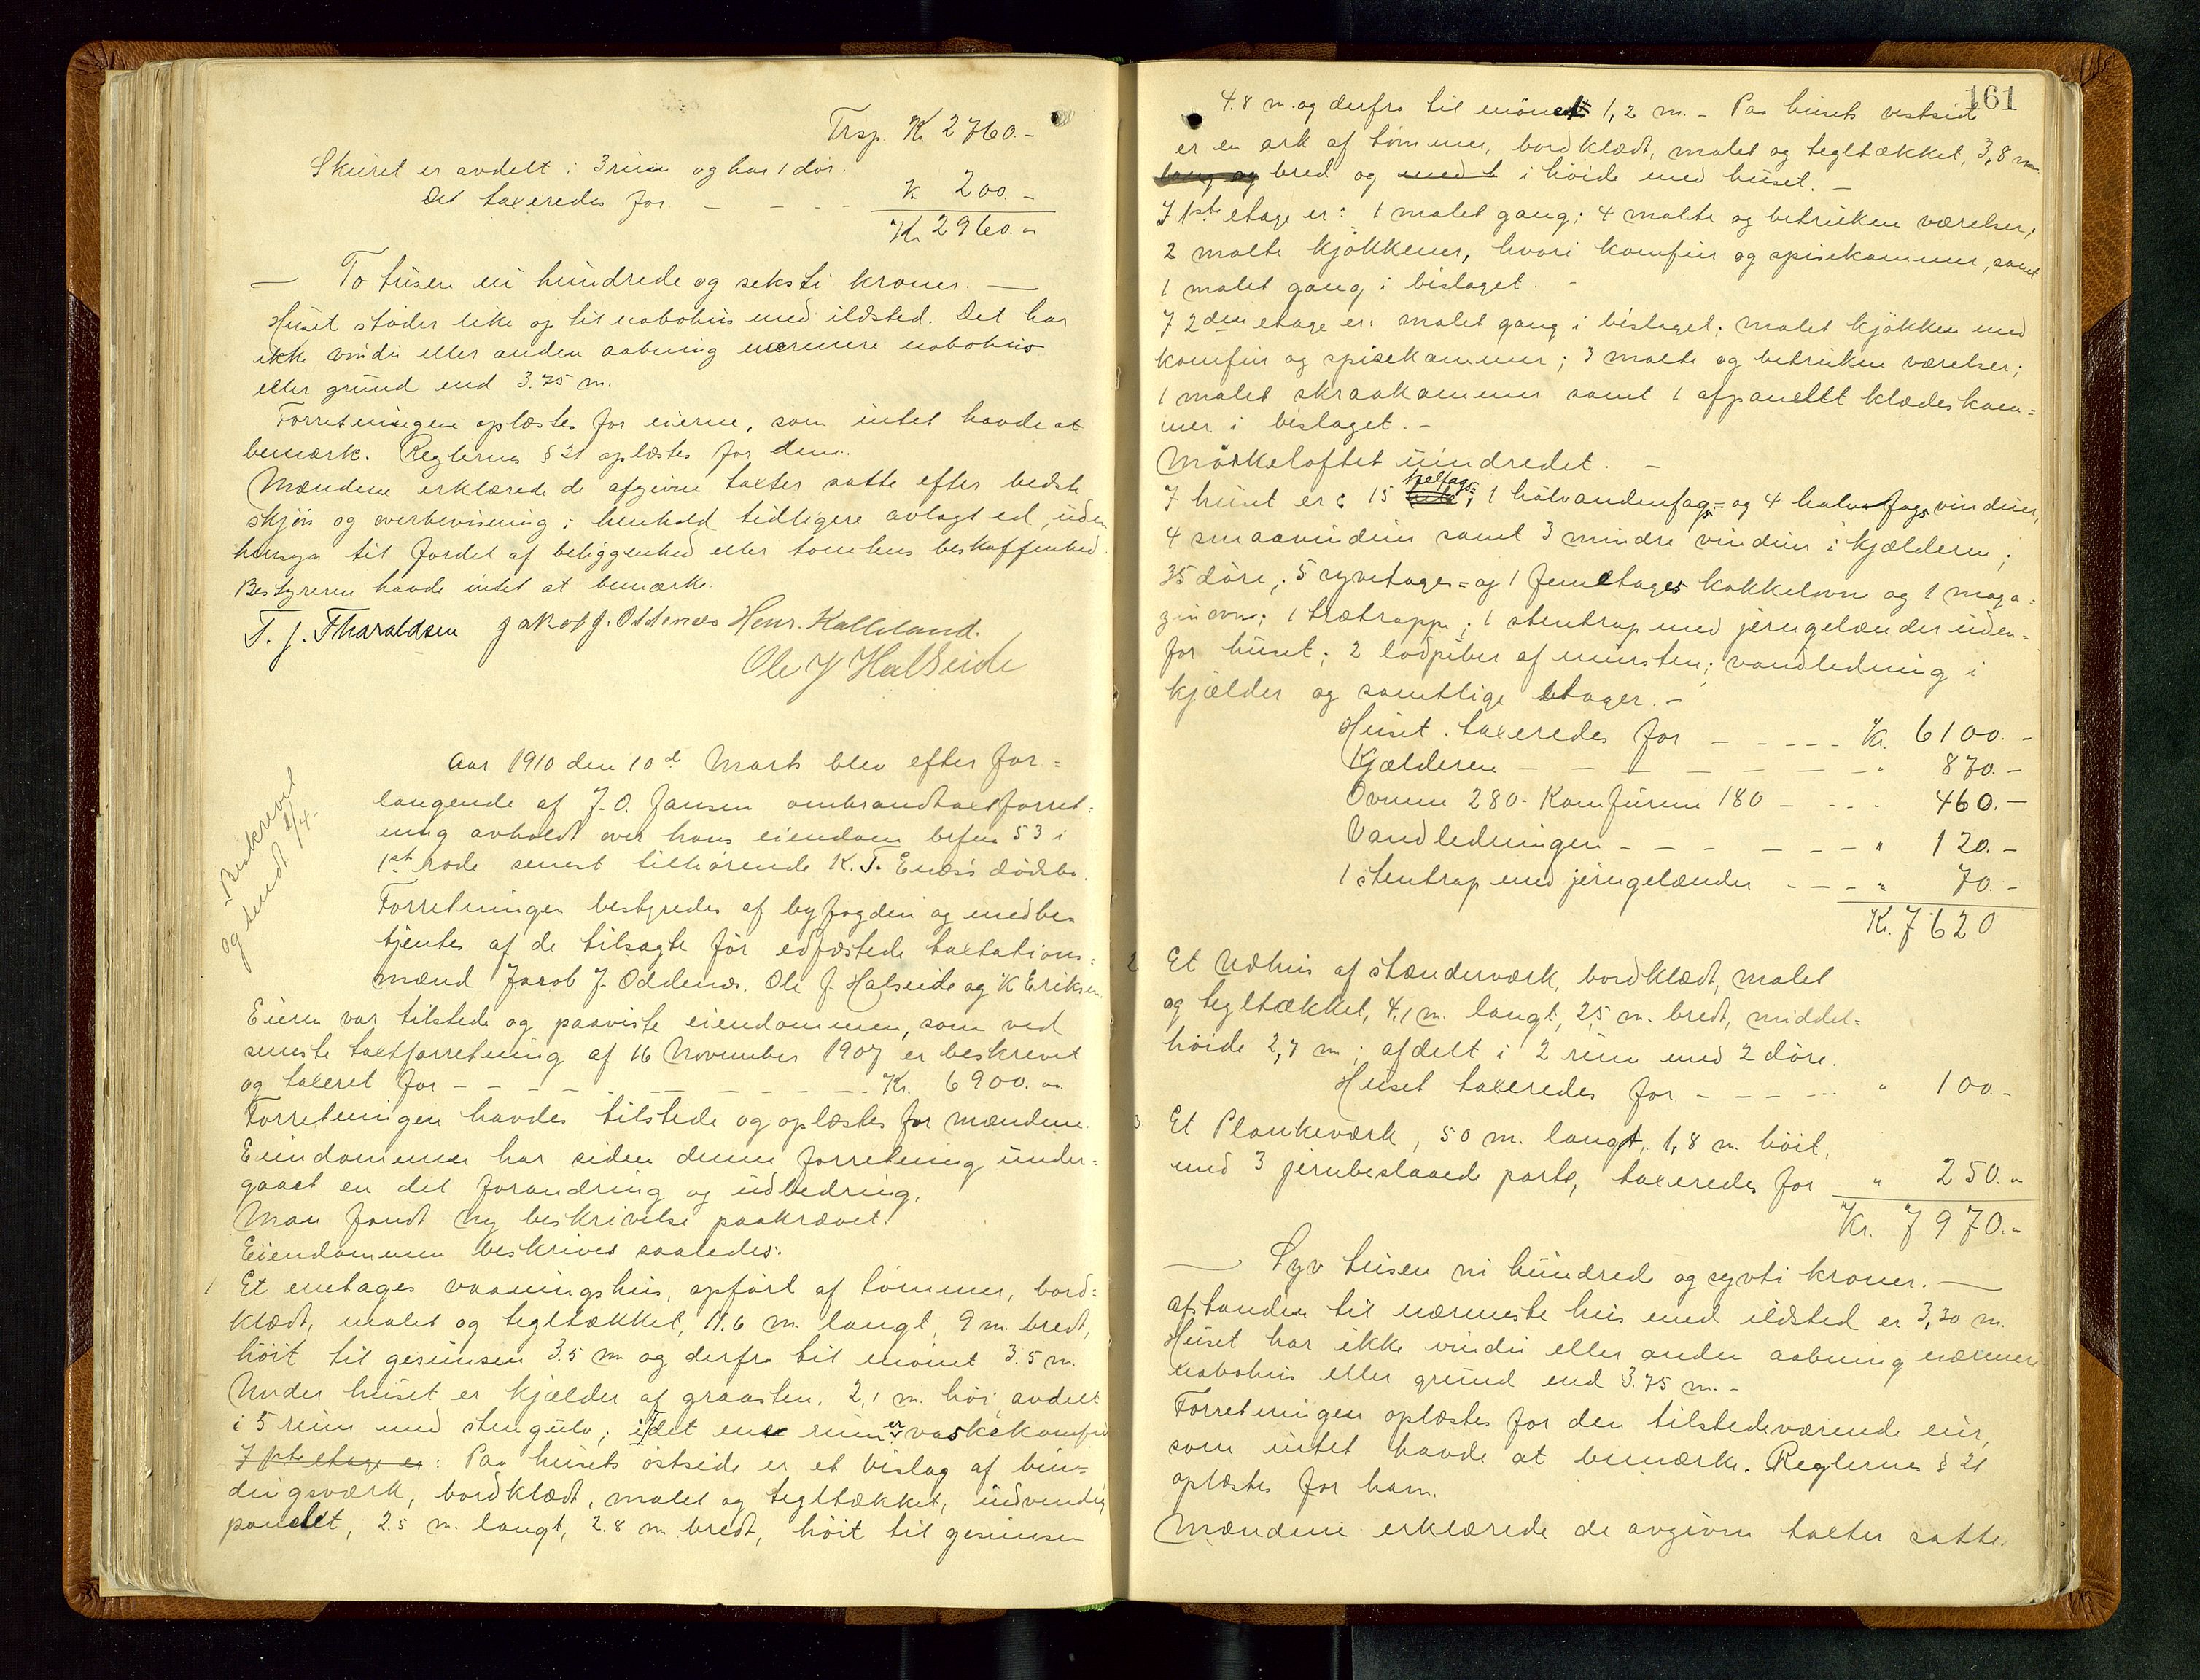 Trsp. Kr 2760.-
Skuret er avdelt i 3 rum og har 1 dør.
Det taxeredes for - - - - K 200.-
Kr 2960.-
— To tusen ni hundrede og seksti kroner. —
Huset støder like op til nabohus med ildsted. Det har
ikke vindu eller anden aabning nærmere nabohus
eller grund end 3.75 m.
Forretningen oplæstes for eierne, som intet havde at
bemærk. Reglernes § 21 oplæstes for dem.
Mændene erklærede de afgivne taxter satte efter bedste
skjøn og overbevisning i henhold tidligere avlagt ed, uden
hensyn til fordel af beliggenhed eller tomtens beskaffenhed.
Bestyreren havde intet at bemærke.
T. J. Tharaldsen Jakob J. Oddenæs Henr. Kalleland.
Ole J Halseide
Beskrevet
og sendt 2/4.
Aar 1910 den 10de Marts blev efter for=
langende af J. O. Jansen ombrandtaxtforret=
ning avholdt over hans eiendom brfnr 53 i
1st rode senest tilhørende K. T. Enæs's dødsbo.
Forretningen bestyredes af byfogden og medbe
tjentes af de tilsagte før edfæstede taxtations=
mænd Jacob J. Oddenæs, Ole J. Halseide og K Eriksen.
Eieren var tilstede og paaviste eiendommen, som ved
seneste taxtforretning af 16 November 1907 er beskrevet
og taxeret for - - - - - - - - - - Kr. 6900.-
Forretningen havdes tilstede og oplæstes for mændene.
Eiendommen har siden denne forretning under=
gaaet en del forandring og udbedring.
Man fandt ny beskrivelse paakrævet.
Eiendommen beskrives saaledes:
1 Et enetages vaaningshus, opført af tømmer, bord=
klædt, malet og tegltækket, 11.6 m. langt, 9 m. bredt,
høit til gesimsen 3.5 m og derfra til mønet 3.5 m.
Under huset er kjælder af graasten, 2,1 m. høi, avdelt
i 5 rum med stengulv; i det ene rum er vaskekomfur
I 1ste etage er: Paa husets østside er et bislag af bin=
dingsværk, bordklædt, malet og tegltækket, indvendig
panelt, 2.5 m. langt, 2.8 m. bredt, høit til gesimsen
161
4.8 m. og derfra til mønet 1,2 m. - Paa husets vestside
er en ark af tømmer, bordklædt, malet og tegltækket, 3,8 m.
lang og bred og med t i høide med huset. -
I 1st etage er: 1 malet gang; 4 malte og betrukne værelser;
2 malte kjøkkener, hvori komfur og spisekammer, samt
1 malet gang i bislaget. -
I 2den etage er: malet gang i bislaget; malet kjøkken med
komfur og spisekammer; 3 malte og betrukne værelser;
1 malet skraakammer samt 1 afpanellt klædeskam=
mer i bislaget. -
Mørkeloftet uindredet. -
I huset er: 15 helfags=; 1 halvandenfags= og 4 halvfags vinduer,
4 smaavinduer samt 3 mindre vinduer i kjælderen;
35 døre; 5 ryvetages= og 1 femetages kakkelovne og 1 maga=
zinovn; 1 trætrappe; 1 stentrap med jerngelænder uden=
for huset; 2 lodpiber af mursten; vandledning i
kjælder og samtlige etager. -
Huset taxeredes for - - - - - Kr. 6100.-
Kjælderen - - - - - - - - " 870.-
Ovnene 280.- Komfurene 180 - - - - 460.-
Vandledningen - - - - - - " 120.-
1 stentrap med jerngelænder - - - " 70.-
Kr. 7620
2. Et Udhus af stænderværk, bordklædt, malet
og tegltækket, 4,1 m. langt, 2,5 m. bredt, middel=
høide 2,7 m; afdelt i 2 rum med 2 døre.
Huset taxeredes for - - - - ... " 100.-
3. Et Plankeværk, 50 m. langt, 1,8 m. høit,
med 3 jernbeslaaede porte, taxeredes for " 250.-
Kr. 7970.-
— Syv tusen ni hundrede og syvti kroner. —
Afstanden til nærmeste hus med ildsted er 3,30 m.
Huset har ikke vindu eller anden aabning nærmere
nabohus eller grund end 3.75 m. -
Forretningen oplæstes for den tilstedeværende eier,
som intet havde at bemærke. Reglernes § 21
oplæstes for ham.
Mændene erklærede de avgivne taxter satte.